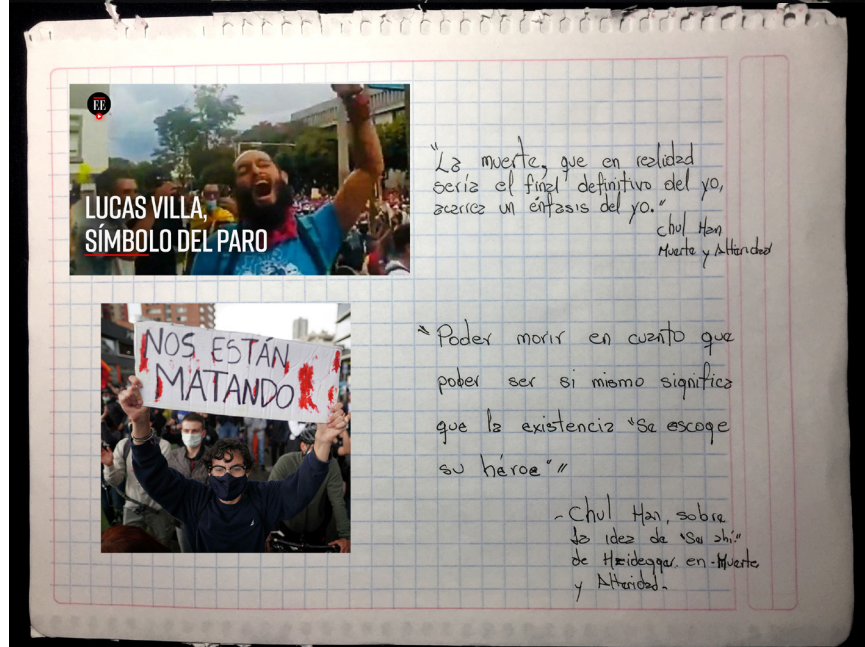 EE
LUCAS VILLA,
SÍMBOLO DEL PARO
"La muerte, que en realidad
sería el final definitivo del yo,
acarrea un énfasis del yo."
Chul Han
Muerte y Alteridad
NOS ESTÁN
MATANDO!
"Poder morir en cuanto que
poder ser si mismo significa
que la existencia "Se escoge
su héroe""
- Chul Han, sobre
la idea de "Ser ahí"
de Heidegger. en -Muerte
y Alteridad-